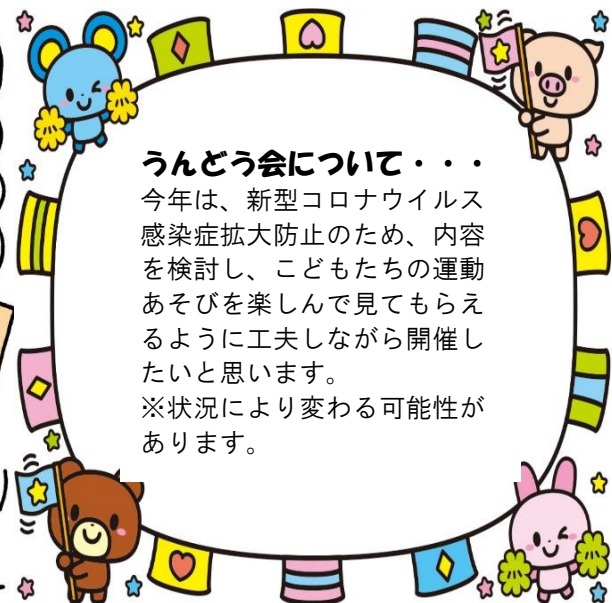 うんどう会について・・・
今年は、新型コロナウイルス
感染症拡大防止のため、内容
を検討し、こどもたちの運動
あそびを楽しんで見てもらえ
るように工夫しながら開催し
たいと思います。
※状況により変わる可能性が
あります。